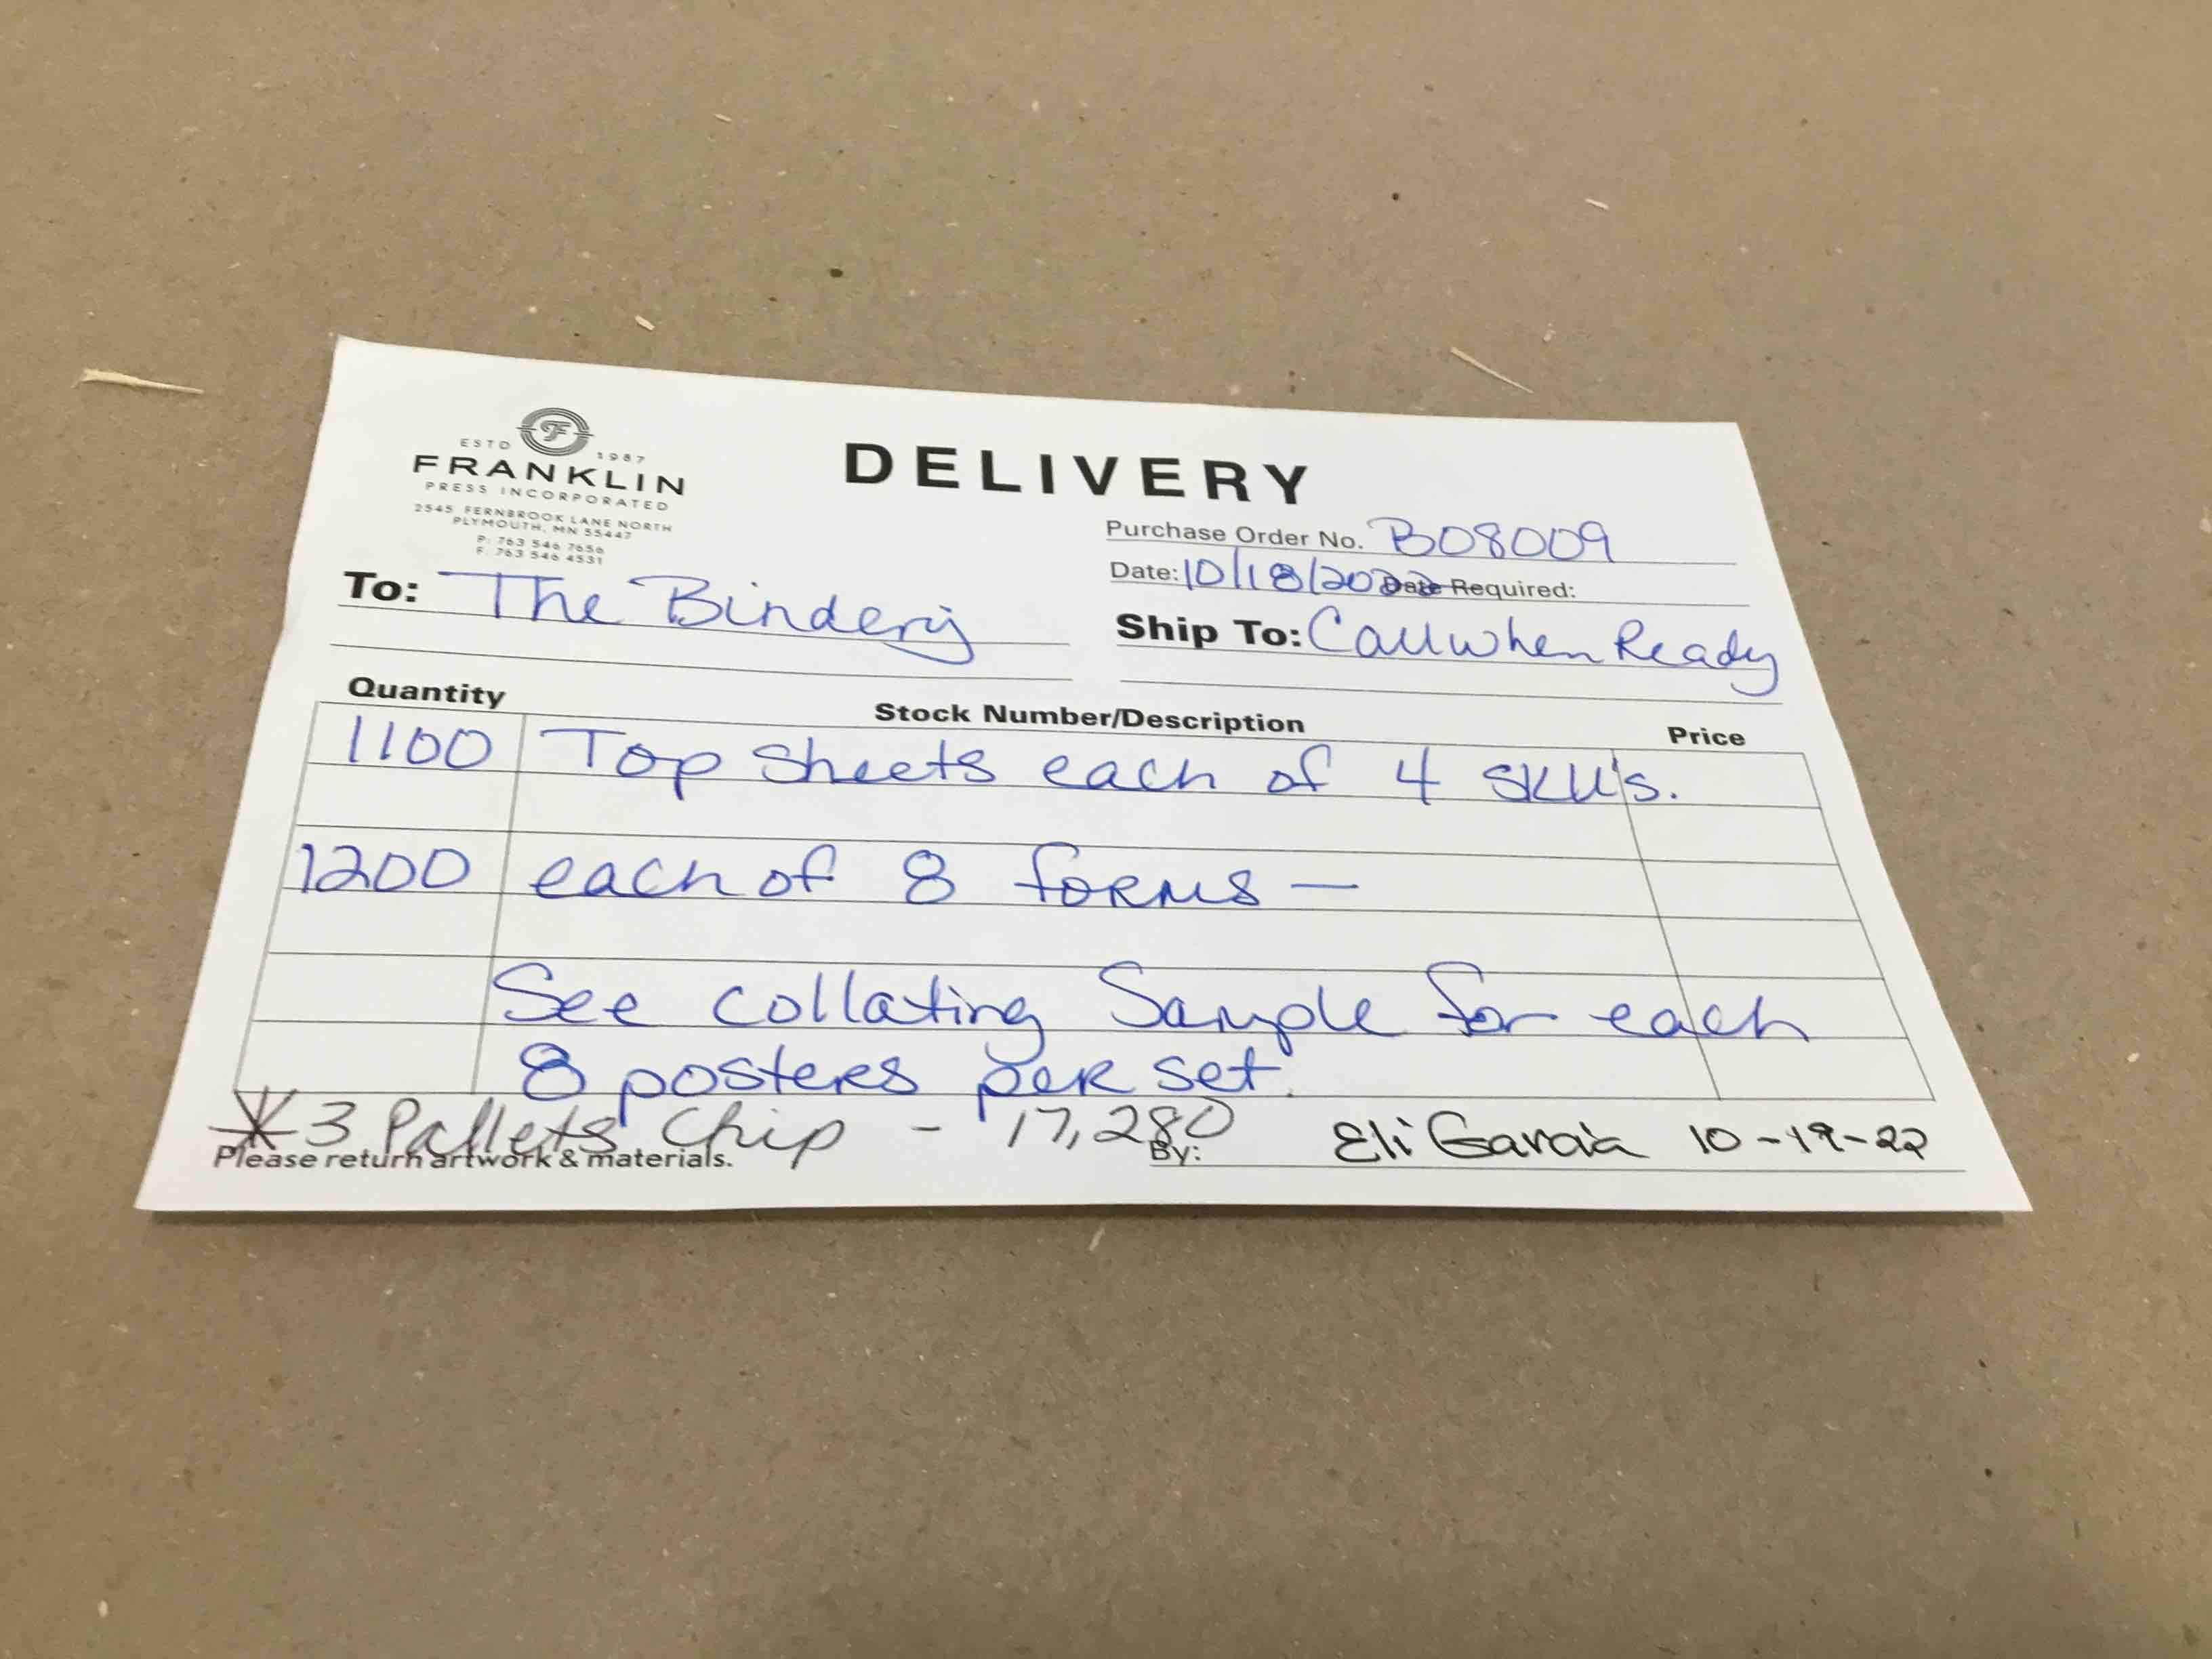 ESTD 1987
FRANKLIN
PRESS INCORPORATED
2545 FERNBROOK LANE NORTH
PLYMOUTH, MN 55447
P: 763 546 7656
F: 763 546 4531
DELIVERY
Purchase Order No. B08009
Date: 10/18/2022 Date Required:
To: The Bindery
Ship To: Call when Ready
Quantity Stock Number/Description Price
1100 Top Sheets each of 4 SKU's.
1200 each of 8 forms —
See collating Sample for each
8 posters per set.
* 3 Pallets Chip - 17,280
Please return artwork & materials.
By: Eli Garcia 10-19-22